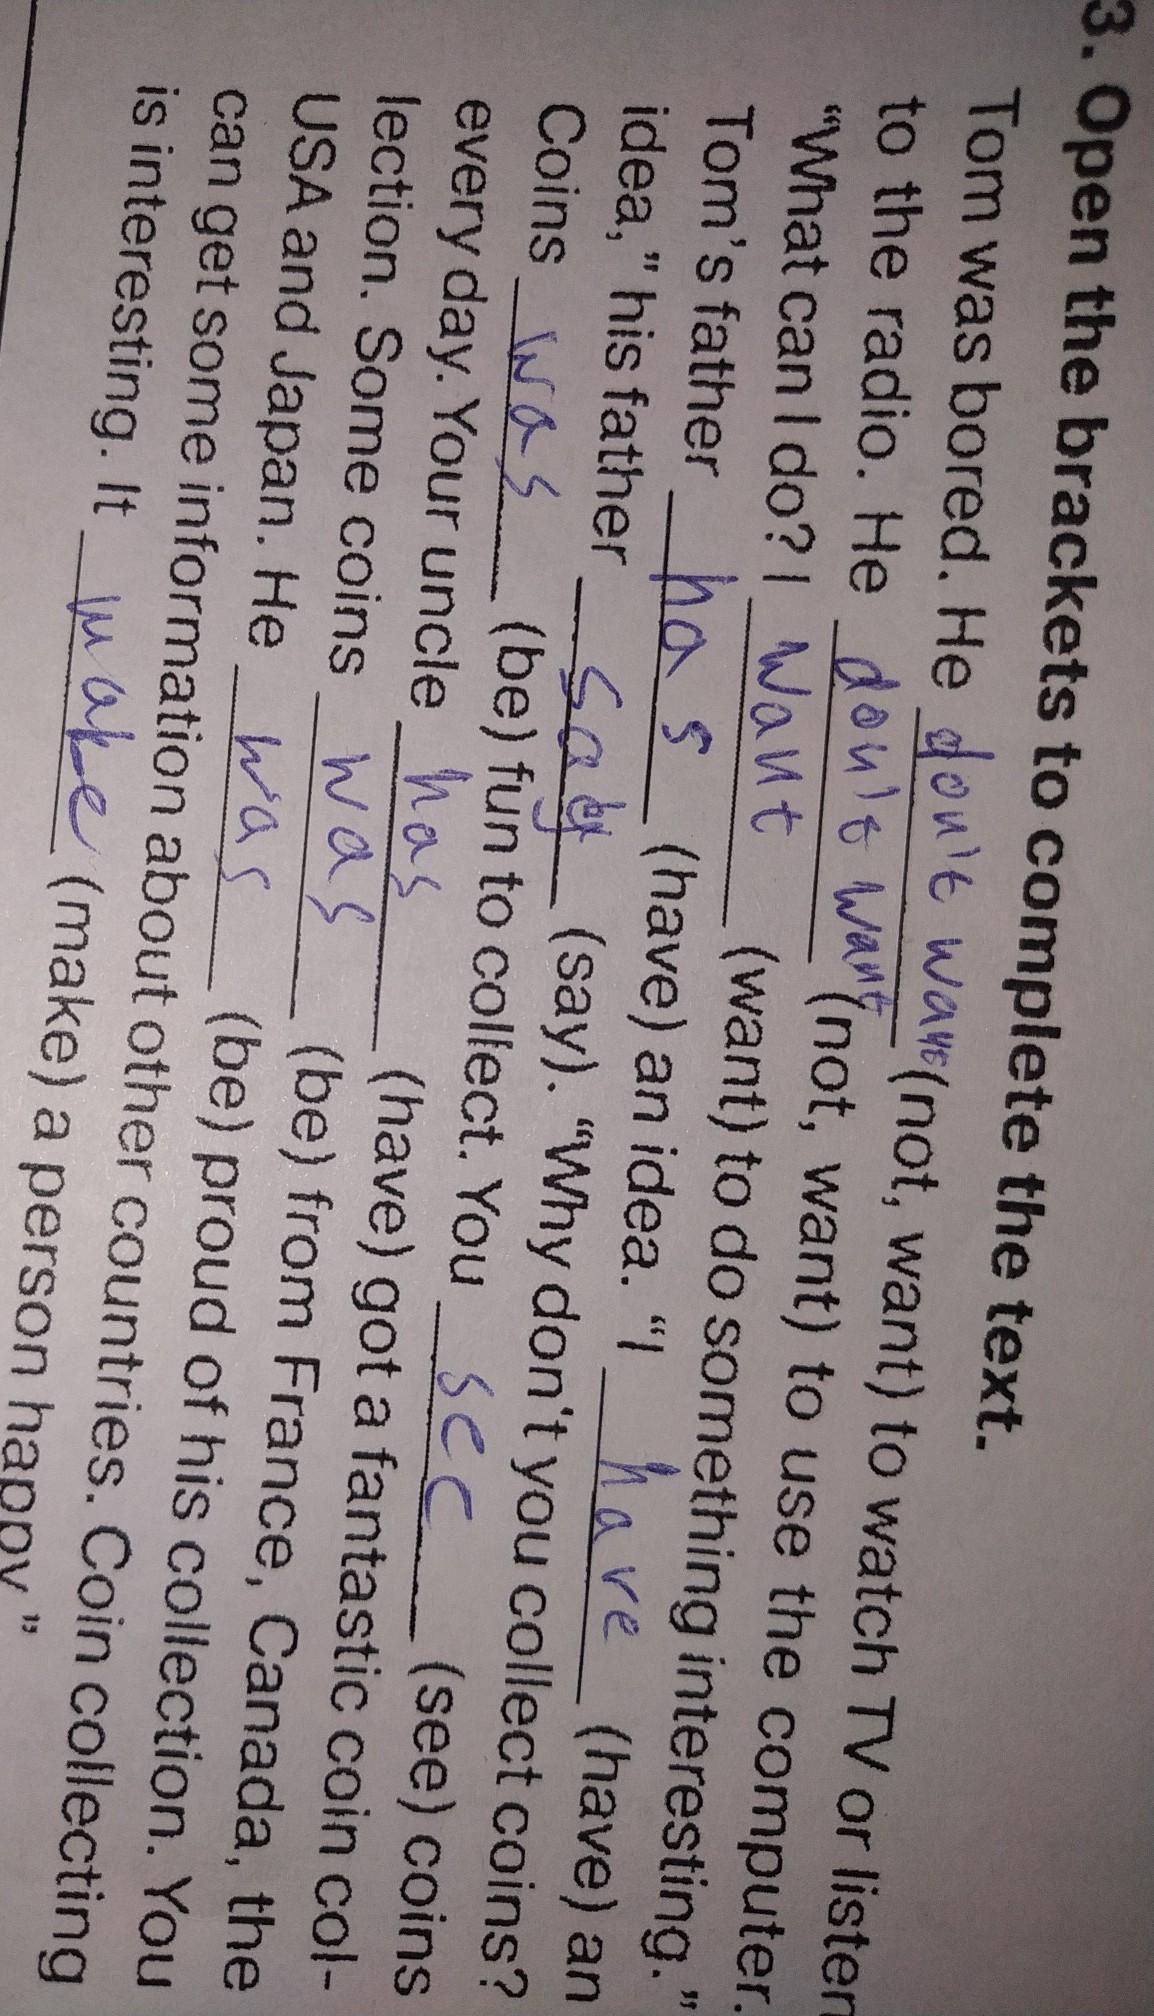 3. Open the brackets to complete the text.
Tom was bored. He don't want (not, want) to watch TV or listen
to the radio. He don't want (not, want) to use the computer.
"What can I do? I want (want) to do something interesting."
Tom's father has (have) an idea. "I have (have) an
idea," his father say (say). "Why don't you collect coins?
Coins was (be) fun to collect. You see (see) coins
every day. Your uncle has (have) got a fantastic coin col-
lection. Some coins was (be) from France, Canada, the
USA and Japan. He was (be) proud of his collection. You
can get some information about other countries. Coin collecting
is interesting. It make (make) a person happy."